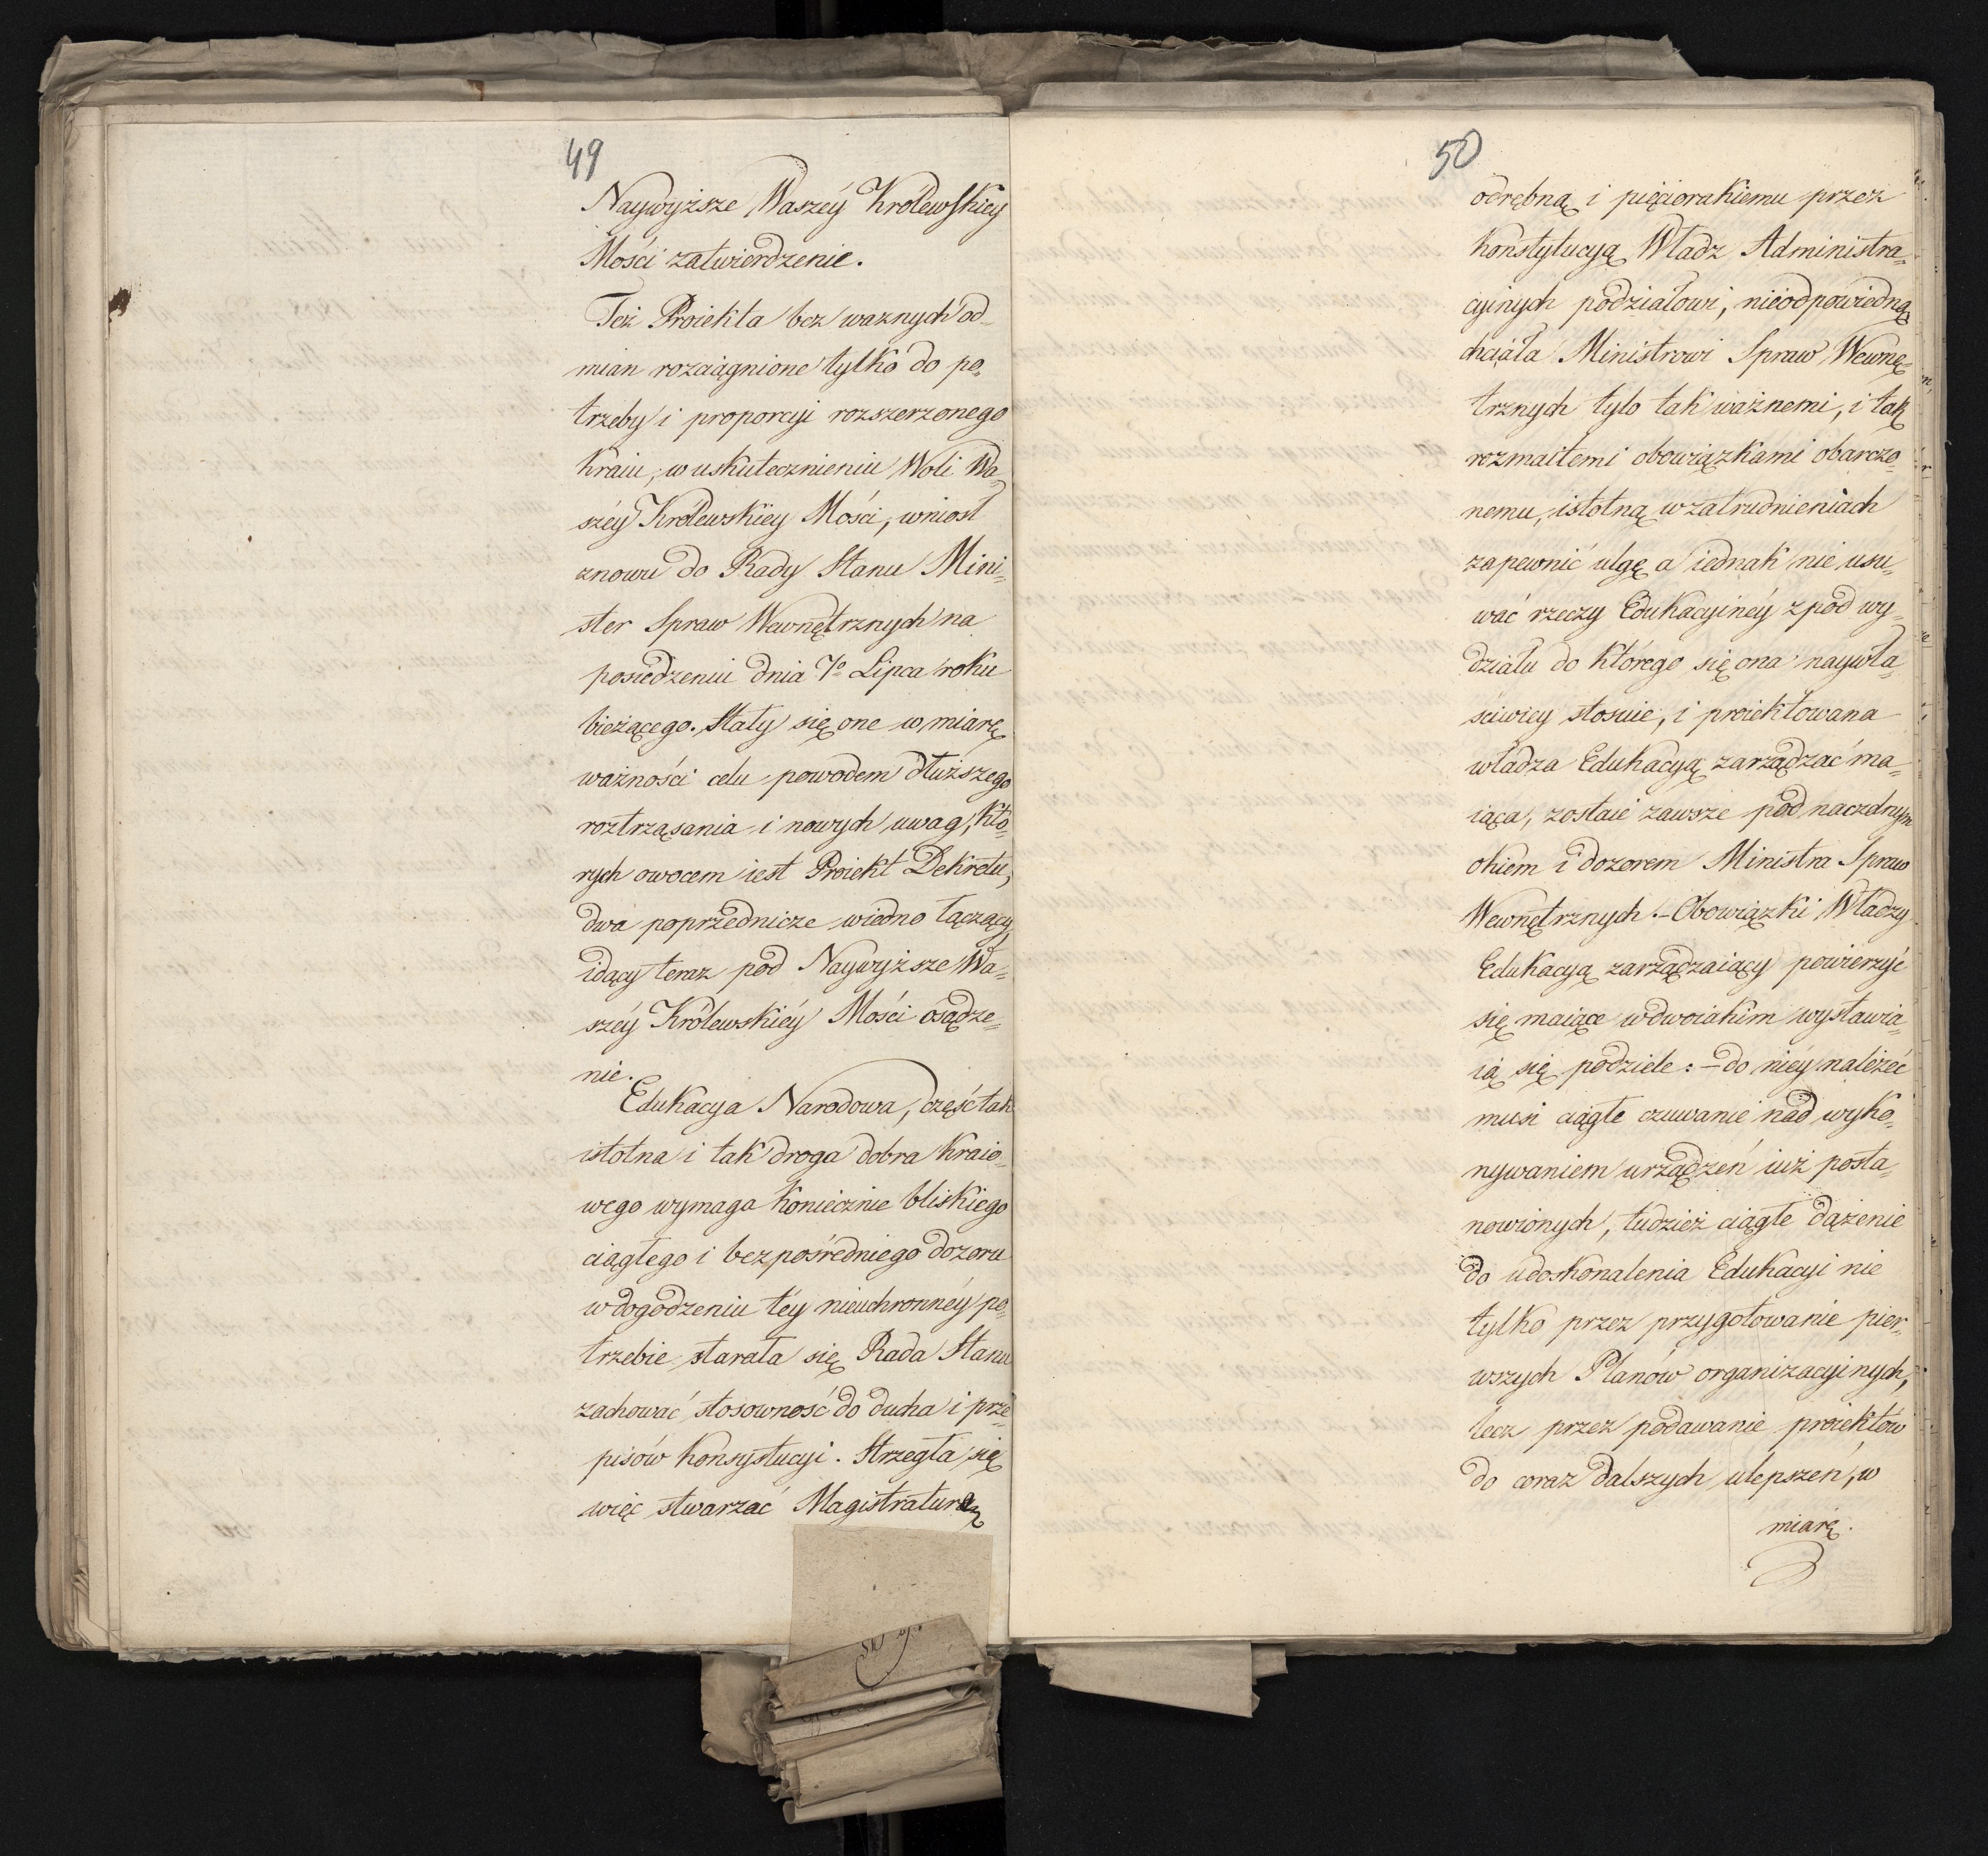 49
Naywyższe Waszéy Królewskiey
Mości zatwierdzenie.
Też Proiekta bez waznych od=
mian rozciągnione tylko do po=
trzeby i proporcyi rozszerzonego
Kraiu, w uskutecznieniu Woli Wa=
széy Królewskiey Mości, wniosł
znowu do Rady Stanu Mini=
ster Spraw Wewnętrznych na
posiedzeniu dnia 7º Lipca roku
bieżącego. Stały się one w miarę
ważności celu powodem dłuższego
roztrząsania i nowych uwag, któ=
rych owocem iest Proiekt Dekretu,
dwa poprzednicze wiedno łączący
idący teraz pod Naywyższe Wa=
széy Królewskiéy Mości osądze=
nie.
Edukacya Narodowa, część tak
istotna i tak droga dobra kraio=
wego wymaga koniecznie bliskiego
ciągłego i bezpośredniego dozoru
w dogodzeniu téy nieuchronnéy po=
trzebie starała się Rada Stanu
zachować stosowność do ducha i prze=
pisów Konsystucyi. Strzegła się
więc stwarzać Magistraturę
50
odrębną i pięciorakiemu przez
Konstytucyą Władz Administra=
cyinych podziałowi, nieodpowiedną
chciała Ministrowi Spraw Wewnę=
trznych tylo tak ważnemi, i tak
rozmaitemi obowiązkami obarczo=
nemu, istotną w zatrudnieniach
zapewnić ulgę a iednak nie usu=
wać rzeczy Edukacyinéy z pod wy=
działu do którego się ona naywła=
ściwiey stosuie, i proiektowana
władza Edukacyą zarządzać ma=
iąca, zostaie zawsze pod naczelnym
okiem i dozorem Ministra Spraw
Wewnętrznych. – Obowiązki Władzy
Edukacyą zarządzaiący powierzyć
się maiące w dwoiakim wystawia=
ią się podziele: – do niéy należéć
musi ciągłe czuwanie nad wyko=
nywaniem urządzeń iuż posta=
nowionych, tudzież ciągłe dążenie
do udoskonalenia Edukacyi nie
tylko przez przygotowanie pier=
wszych Planów organizacyinych,
lecz przez podawanie proiektów
do coraz dalszych ulepszeń, w
miarę.